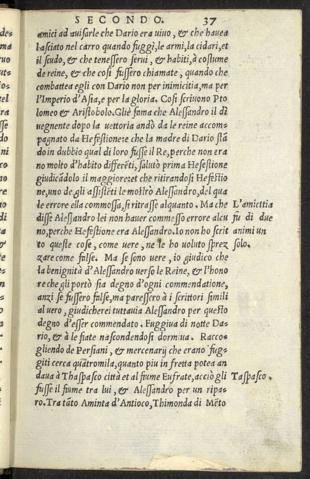 SECONDO. 37
amici ad auisarle che Dario era uiuo, & che hauea
lasciato nel carro quando fuggì, le armi, la cidari, et
il scudo, & che tenessero serui, & habiti, à costume
de reine, & che cosi fussero chiamate, quando che
combattea egli con Dario non per inimicitia, ma per
l'Imperio d'Asia, e per la gloria. Cosi scriuono Pto
lomeo & Aristobolo. Gliè fama che Alessandro il dì
uegnente dopo la uettoria andò da le reine accom
pagnato da Hefestione: & che la madre di Dario stã
do in dubbio qual di loro fusse il Re, perche non era
no molto d'habito differẽti, salutò prima Hefestione
giudicãdolo il maggiore: et che ritirandosi Hefestio
ne, uno de gli assistẽti le mostrò Alessandro, del qua
le errore ella commossa, si ritrasse alquanto. Ma che
disse Alessandro lei non hauer commesso errore alcu
no, perche Hefestione era Alessandro. Io non ho scrit
to queste cose, come uere, ne le ho uoluto sprez
zare come false. Ma se sono uere, io giudico che
la benignità d'Alessandro uerso le Reine, & l'hono
re che gli portò sia degno d'ogni commendatione,
anzi se fussero false, ma paressero à i scrittori simili
al uero, giudicherei tuttauia Alessandro per questo
degno d'esser commendato. Fuggiua di notte Da
rio, & à le fiate nascondendosi dormiua. Racco
gliendo de Persiani, & mercenarij che erano fug
giti cerca quatromila, quanto piu in fretta potea an
daua à Thaspasco città et al fiume Eufrate, acciò gli
fusse il fiume tra lui, & Alessandro per un ripa
ro. Tra tãto Aminta d'Antioco, Thimonda di Mẽto
L'amicitia
fu di due
animi un
solo.
Taspasco.